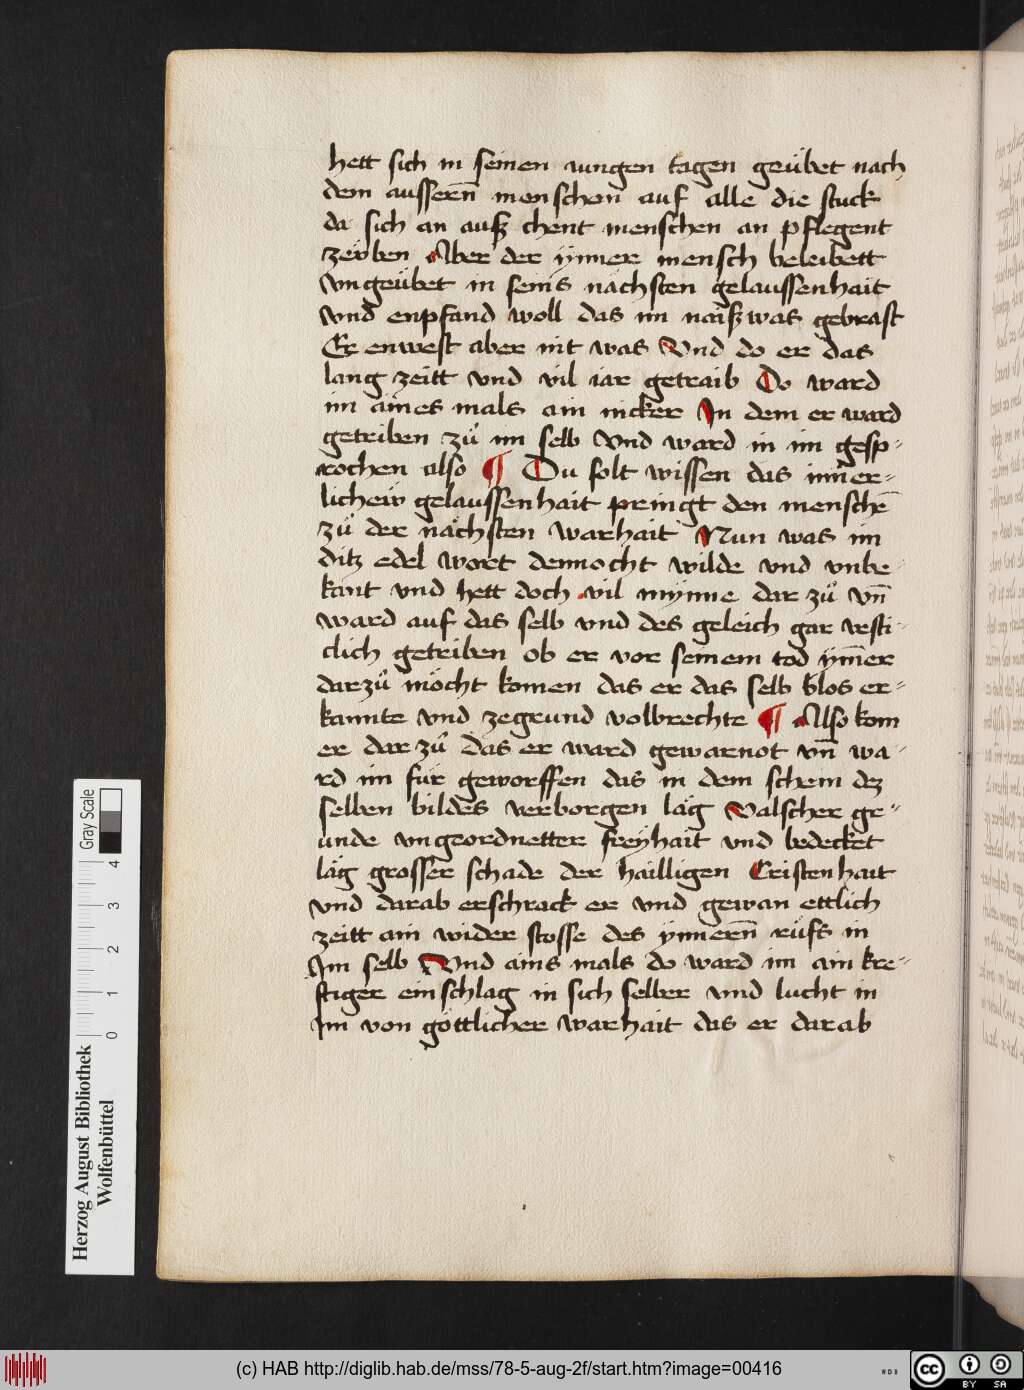 hett sich in seinen iungen tagen geübet nach
dem aussern̄ menschen auf alle die stuck
da sich an aufz chent menschen an pflegent
zeüben Aber der ynner mensch beleibett
vngeübet in seins nächsten gelaussenhait
vnd enpfand woll das im naiszwas gebrast
Er enwest aber nit was Vnd do er das
lang zeitt vnd vil iar getraib Do ward
im aines mals ain nicker In dem er ward
getriben zů im selb vnd ward in im gesp-
rochen also ¶ Du solt wissen das inner-
licheiv gelaussenhait pringt den menschē
zů der nächsten warhait Nun was im
ditz edel wort dennocht wilde vnd vnbe
kant vnd hett doch vil mynne dar zů vn̄
ward auf das selb vnd des geleich gar vesti-
clich getriben ob er vor seinem tod ym̄er
darzů möcht komen das er das selb blos er-
kannte vnd zegrund volbrechte ¶ Also kom
er dar zů das er ward gewarnot vn̄ wa-
rd im für geworffen das in dem schein dez
selben bildes verborgen läg valscher ge-
unde vngeordnetter freyhait vnd bedecket
läg grosser schade der hailligen Cristenhait
vnd darab erschrack er vnd gewan ettlich
zeitt ain wider stosse des ynnern̄ rüfs in
Im selb Vnd ains mals do ward im ain kre-
ftiger einschlag in sich selber vnd lucht in
Im von göttlicher warhait das er darab
Gray Scale
0 1 2 3 4
Herzog August Bibliothek
Wolfenbüttel
(c) HAB http://diglib.hab.de/mss/78-5-aug-2f/start.htm?image=00416
WDB
cc BY SA